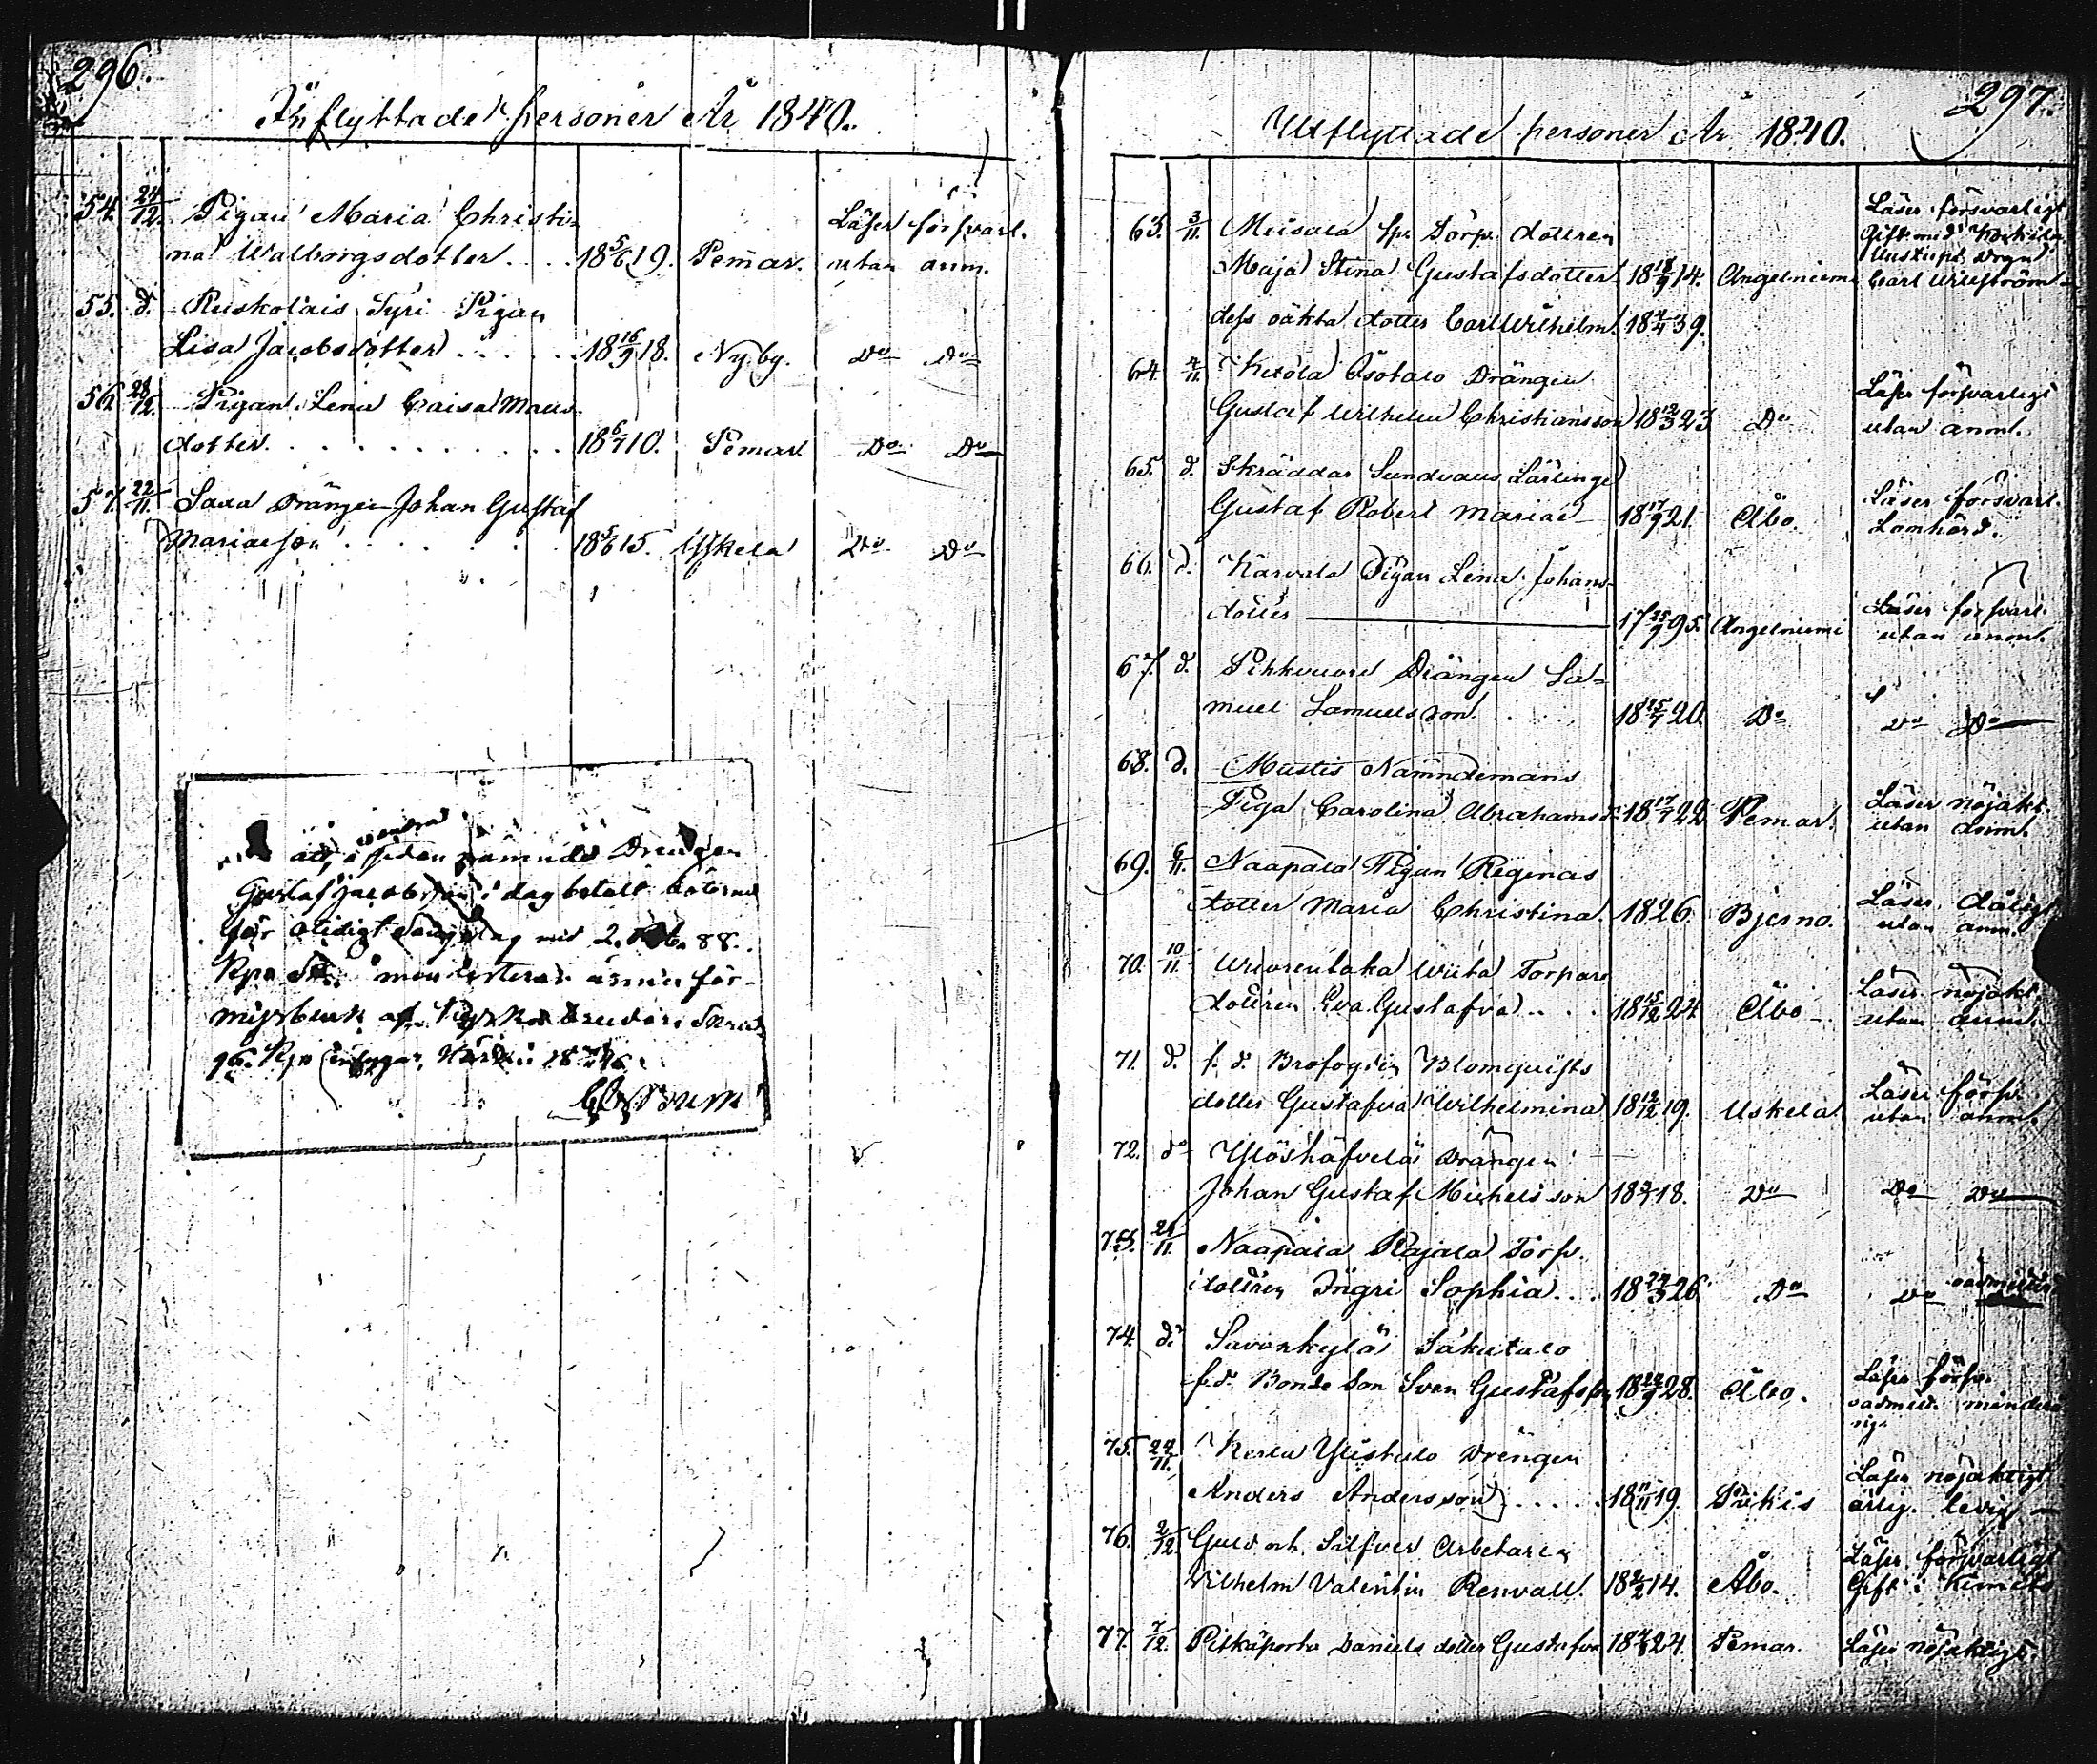 296.
Inflyttade personer År 1840.
54. 24/12. Pigan Maria Christi=
na Walborgsdotter.... 18 5/6 19. Pemar. Läser försvarl. utan anm.
55. d. Ruskolais Tyri Pigan
Lisa Jacobsdotter..... 18 16/9 18. Nyby. Do Do
56. 28/12. Pigan Lena Caisa Mats=
dotter.......... 18 6/7 10. Pemar Do Do
57. 22/11. Drängen Johan Gustaf
Mariæson....... 18 5/6 15. Uskela Do Do
att å sidan nämnde Drengen
Gustaf Jacobsson i dag betalt böterne
för otidigt Sängelag med 2. 88.
Kyrko
96.
297.
Utflyttade personer År 1840.
63. 3/11. Muisala Torp. dottren
Maja Stina Gustafsdotter 18 18/9 14. Angelniemi
Läser försvarligt
Gift med
Carl
dess oäkta dotter Carl Wilhelm. 18 4/4 39.
64. 4/11. Ketola Isotalo Drängen
Gustaf Wilhelm Christiansson 18 12/3 23 Do Läser försvarligt utan anm.
65. d. Skräddar Sundvalls Lärlinge
Gustaf Robert Mariæ 18 17/9 21. Åbo. Läser försvarl.
Lomhörd.
66. d. Karvala Pigan Lena Johans-
dotter 17 25/9 95. Angelniemi Läser försvarl. utan anm.
67. d. Pihkvuori Drängen Sa=
muel Samuelsson.... 18 25/7 20. Do Do Do
68. d. Mustis Nämndemans
Piga Carolina Abrahams d. 18 17/7 22 Pemar. Läser nöjakt. utan anm.
69. 6/11. Naapala Pigan Reginas
dotter Maria Christina. 1826. Bjerno. Läser dåligt utan anm.
70. 10/11. Wuorentaka Wiita Torpare
dottren Eva Gustafva.... 18 15/12 24 Åbo Läser nöjakt. utan anm.
71. d. f. d. Brofogden Blomquists
dotter Gustafva Wilhelmina 18 12/12 19. Uskela. Läser försv. utan anm.
72. do Ylöshäfvelä Drängen
Johan Gustaf Michelsson 18 18. Do Do Do
73. 21/11. Naapala Rajala Torp.
dottren Ingri Sophia... 18 24/3 26. Do Do oadmitterad
74. d. Savonkylä Säkutalo
f.d. Bonde Son Sven Gustafsson 18 24/9 28. Åbo. Läser försv.
oadmitt. minderå
rig.
75. 24/11. Kerla Ylistalo Drängen
Anders Andersson..... 18 11/11 19. Piikis Läser nöjaktigt
76. 2/12. Guld och Silfver Arbetaren
Wilhelm Valentin Renvall. 18 2/2 14. Åbo. Läser försvarligt
Gift i Kimito
77. 7/12. Pitkäporta Daniels dotter Gustafva 18 24. Pemar. Läser nöjaktigt.